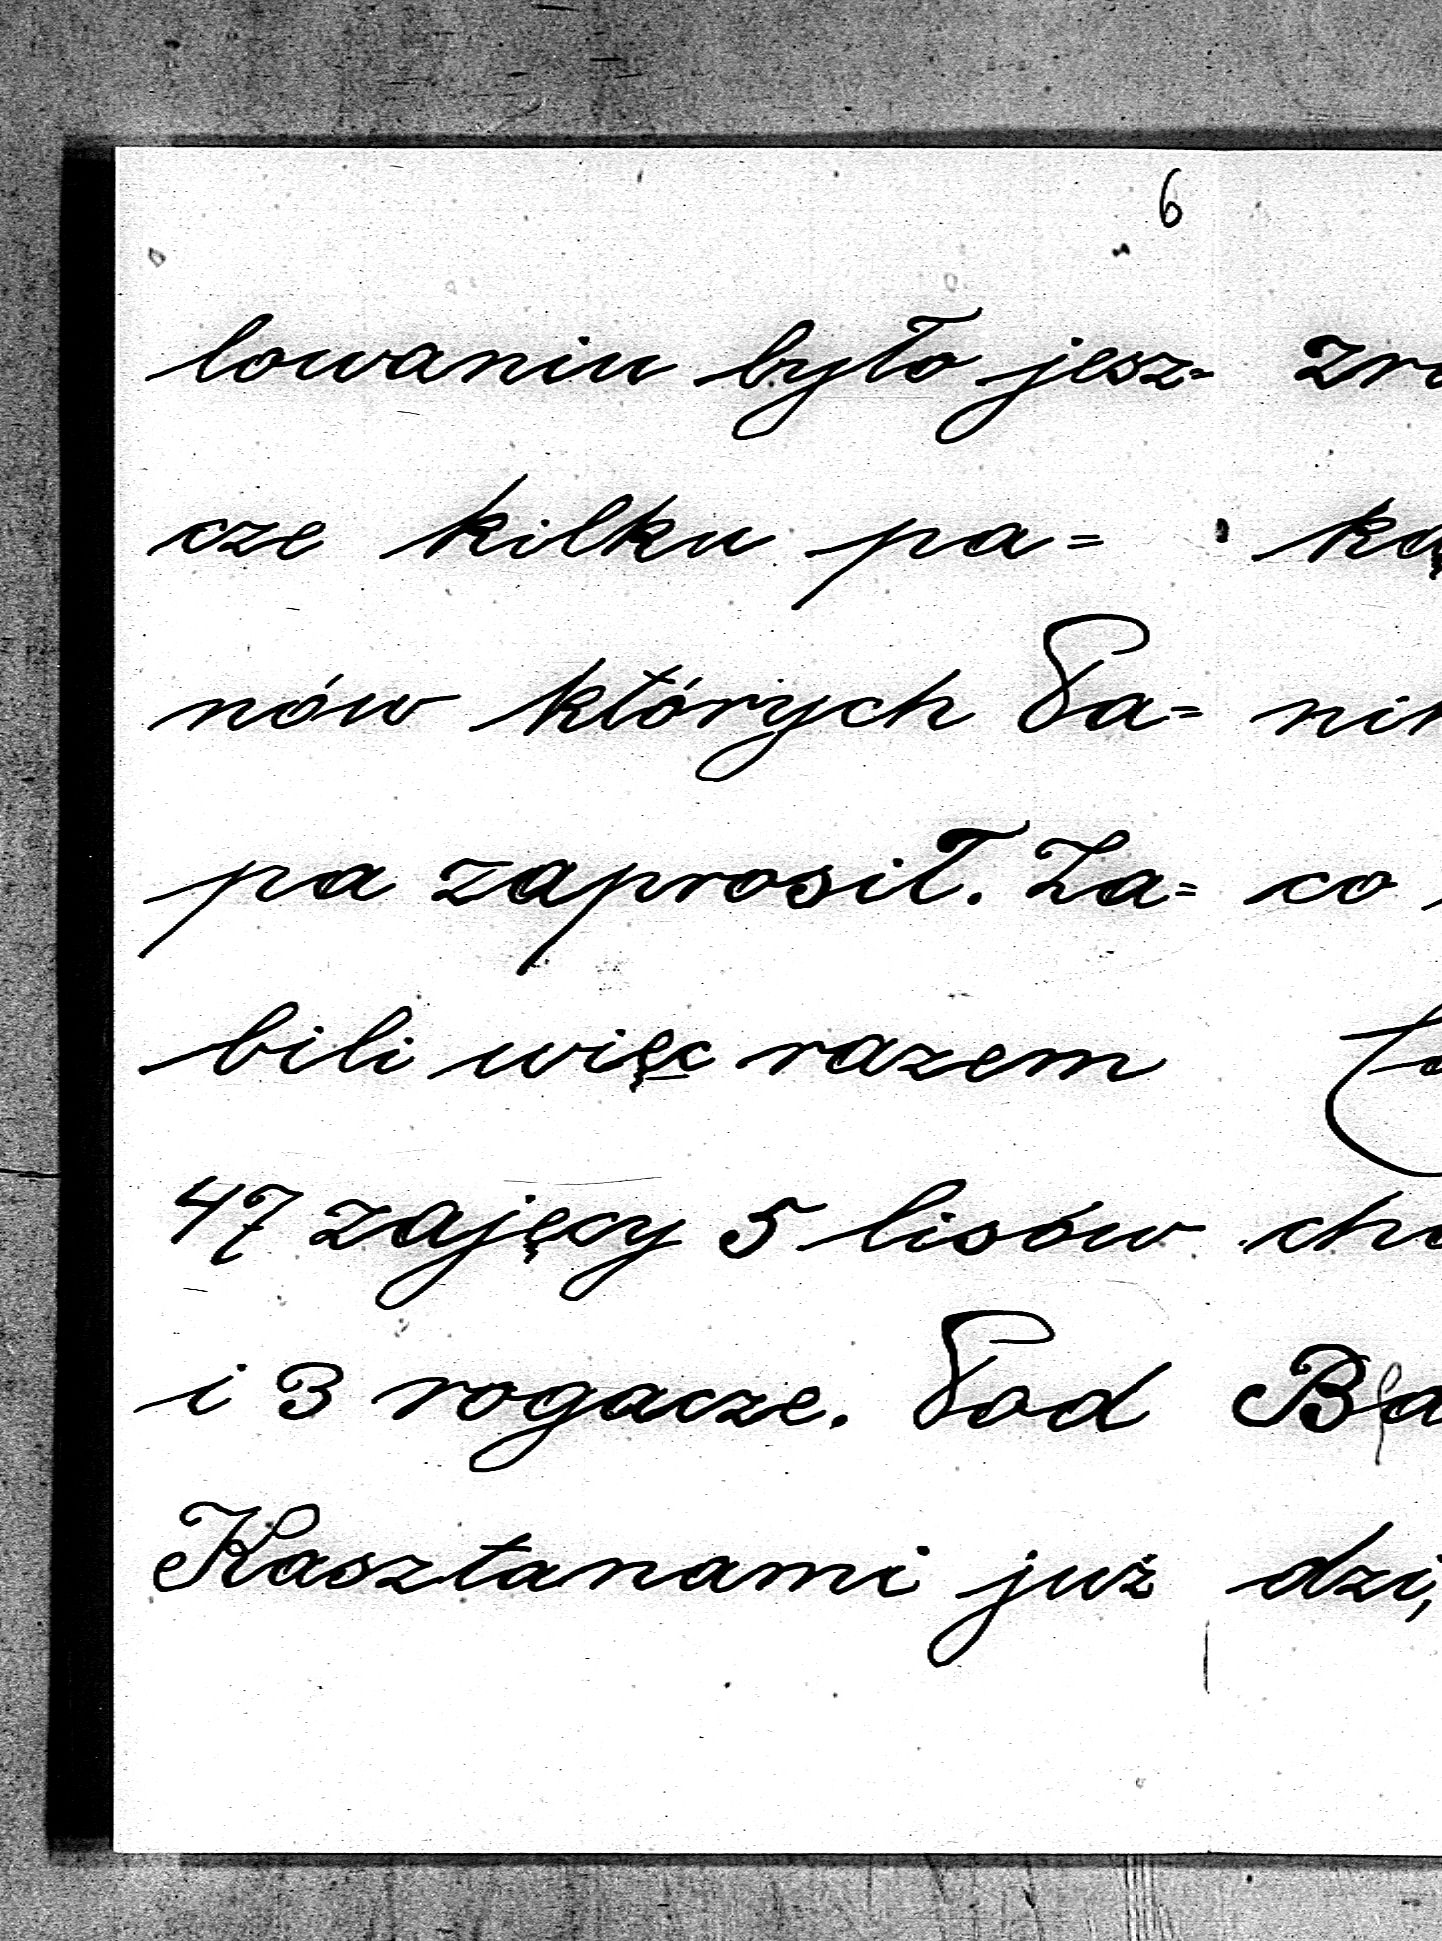 6
lowaniu było jesz=
cze kilku pa=
nów których Pa=
pa zaprosił. Za=
bili więc razem
47 zajęcy 5 lisów
i 3 rogacze. Pod
Kasztanami już
co